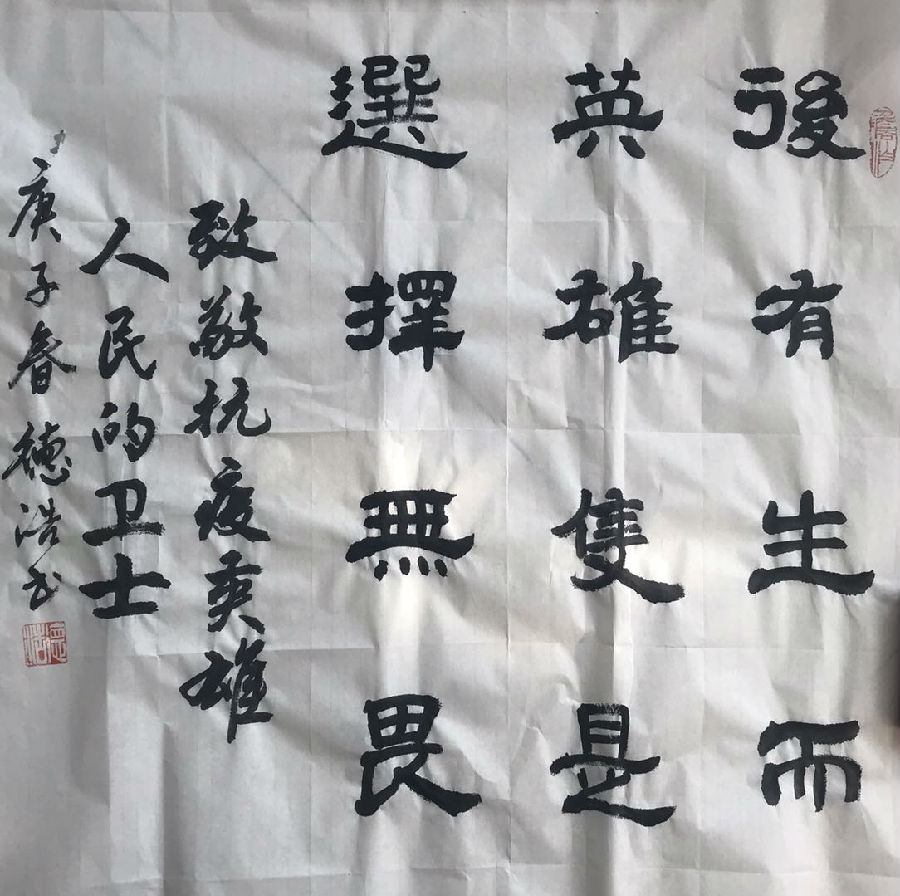 後有生而
英雄隻是
選擇無畏
致敬抗疫英雄
人民的卫士
庚子春德浩书